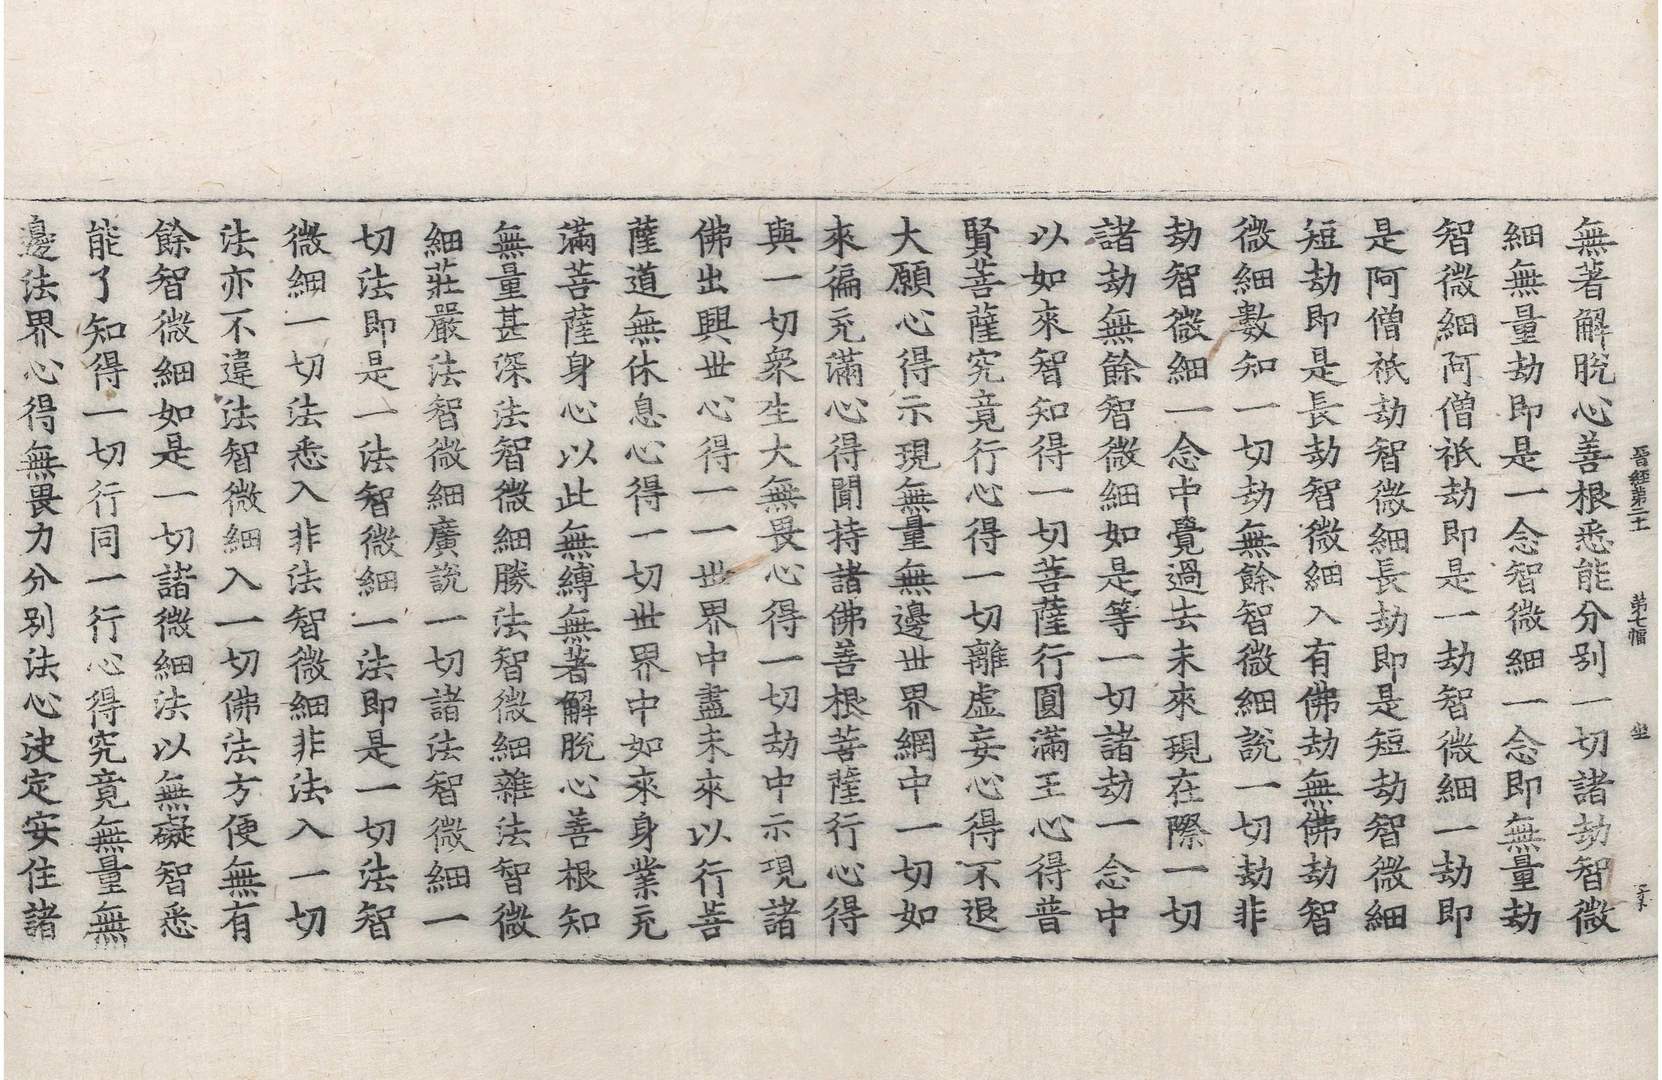 晉經第二十 第七幅 坐
無著解脫心善根悉能分別一切諸劫智微
細無量劫即是一念智微細一念即無量劫
智微細阿僧祇劫即是一劫智微細一劫即
是阿僧祇劫智微細長劫即是短劫智微細
短劫即是長劫智微細入有佛劫無佛劫智
微細數知一切劫無餘智微細說一切劫非
劫智微細一念中覺過去未來現在際一切
諸劫無餘智微細如是等一切諸劫一念中
以如來智知得一切菩薩行圓滿王心得普
賢菩薩究竟行心得一切離虛妄心得不退
大願心得示現無量無邊世界網中一切如
來徧充滿心得聞持諸佛善根菩薩行心得
與一切衆生大無畏心得一切劫中示現諸
佛出興世心得一一世界中盡未來以行菩
薩道無休息心得一切世界中如來身業充
滿菩薩身心以此無縛無著解脫心善根知
無量甚深法智微細勝法智微細雜法智微
細莊嚴法智微細廣說一切諸法智微細一
切法即是一法智微細一法即是一切法智
微細一切法悉入非法智微細非法入一切
法亦不違法智微細入一切佛法方便無有
餘智微細如是一切諸微細法以無礙智悉
能了知得一切行同一行心得究竟無量無
邊法界心得無畏力分別法心決定安住諸